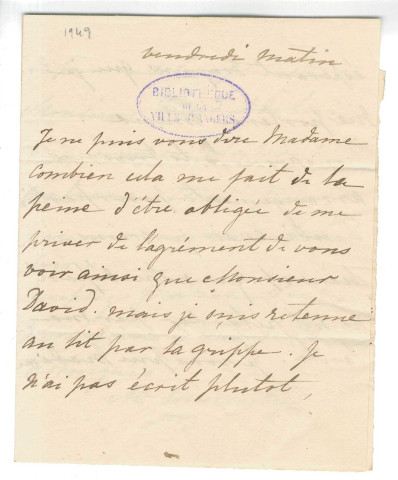 1949
vendredi matin
BIBLIOTHEQUE
DE LA
VILLE D'ANGERS
Je ne puis vous dire Madame
combien cela me fait de la
peine d'être obligée de me
priver de l'agrément de vous
voir ainsi que Monsieur
David. mais je suis retenue
au lit par la grippe. je
n'ai pas écrit plutot,